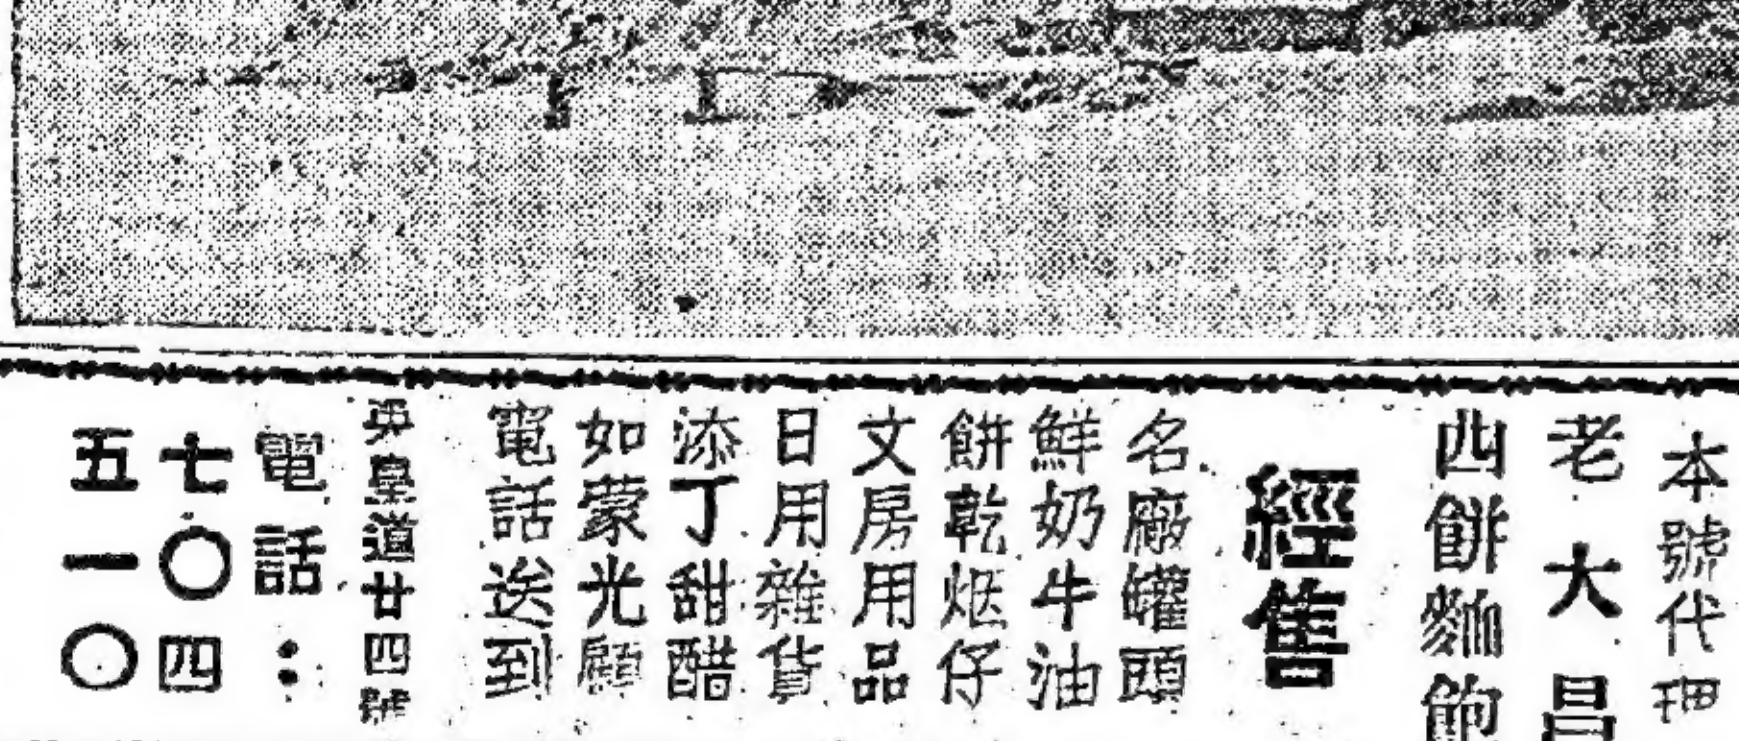 本號代理
老大昌
西餅麵飽
經售
名廠罐頭
鮮奶牛油
餅乾烟仔
文房用品
日用雜貨
添丁甜醋
如蒙光顧
電話送到
英皇道廿四號
電話：
七〇四
五一〇